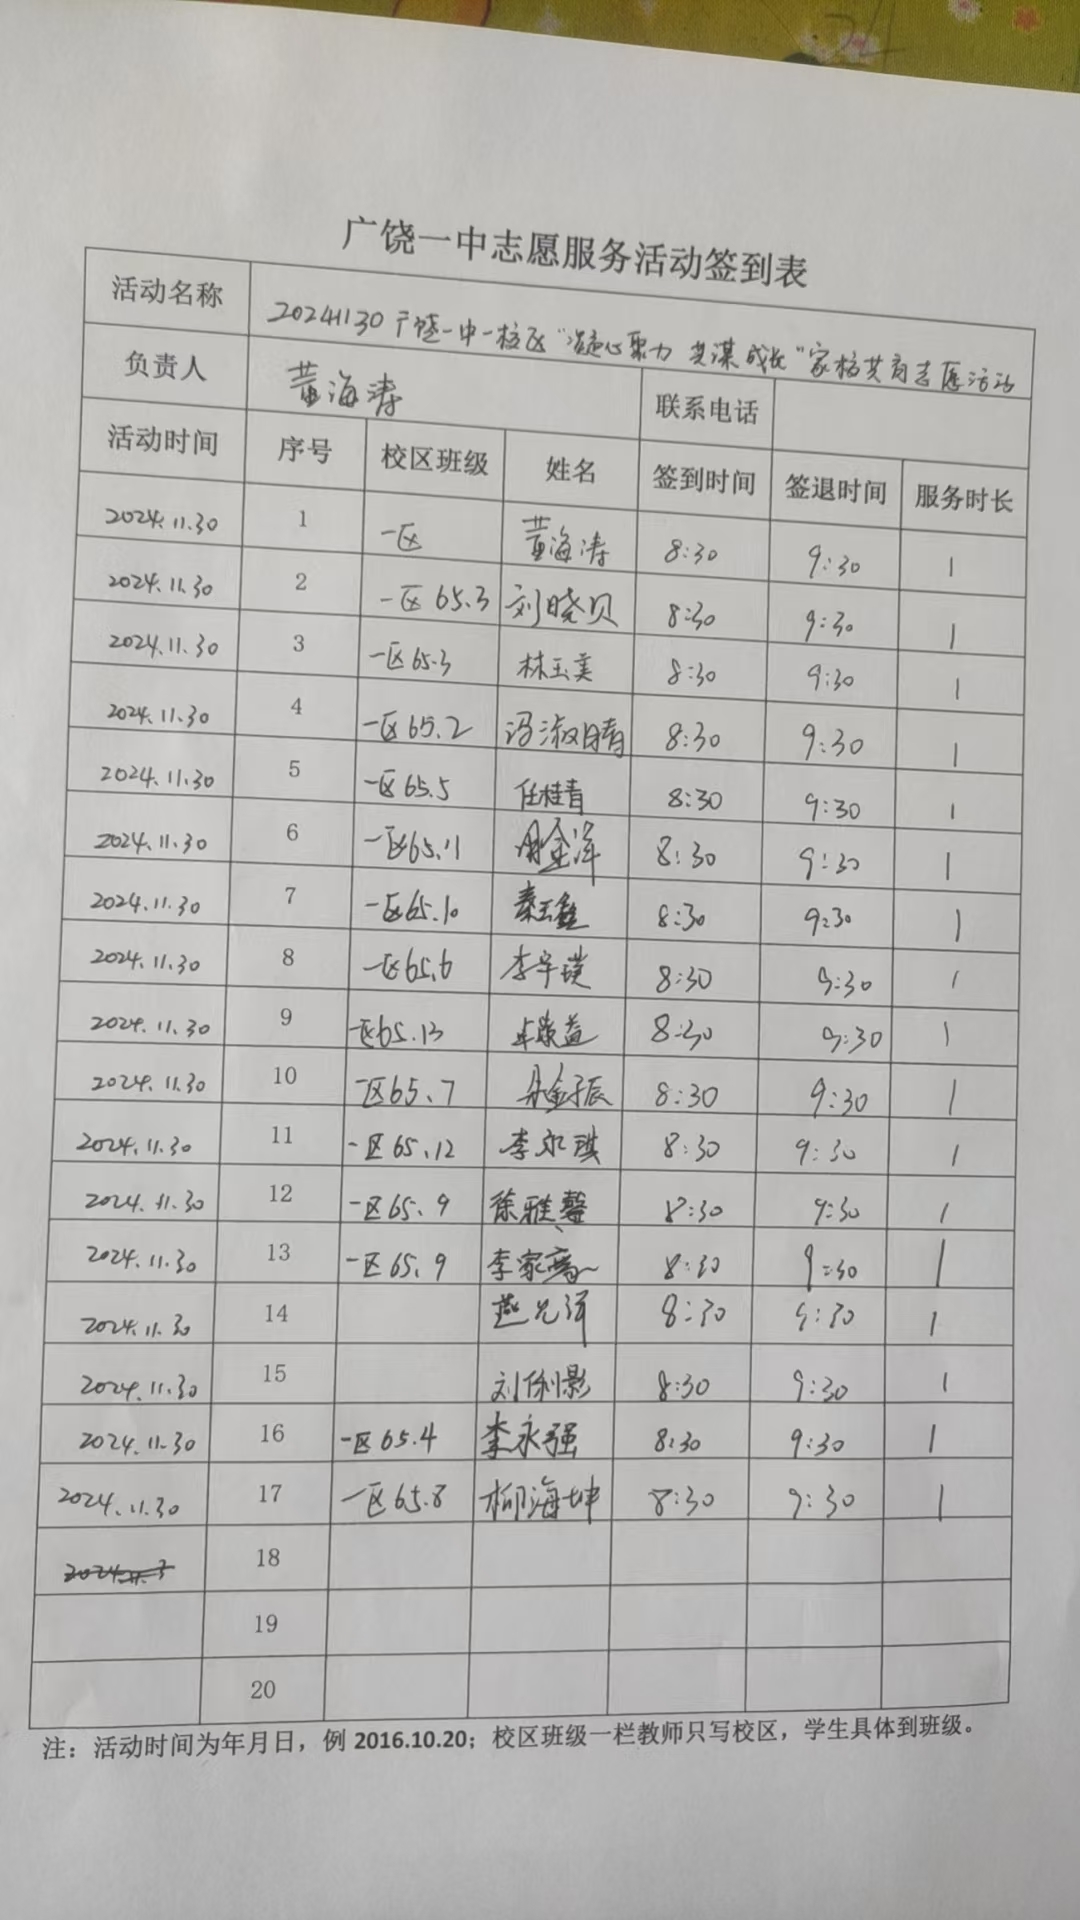 广饶一中志愿服务活动签到表
活动名称 20241130广饶一中一校区"凝心聚力 共谋成长"家校共育志愿活动
负责人 黄海涛 联系电话
活动时间 序号 校区班级 姓名 签到时间 签退时间 服务时长
2024.11.30 1 一区 黄海涛 8:30 9:30 1
2024.11.30 2 一区65.3 刘晓贝 8:30 9:30 1
2024.11.30 3 一区65.3 林玉美 8:30 9:30 1
2024.11.30 4 一区65.2 冯淑晴 8:30 9:30 1
2024.11.30 5 一区65.5 任桂青 8:30 9:30 1
2024.11.30 6 一区65.11 8:30 9:30 1
2024.11.30 7 一区65.10 秦玉鑫 8:30 9:30 1
2024.11.30 8 一区65.6 李宇璞 8:30 9:30 1
2024.11.30 9 一区65.13 8:30 9:30 1
2024.11.30 10 一区65.7 8:30 9:30 1
2024.11.30 11 一区65.12 李永琪 8:30 9:30 1
2024.11.30 12 一区65.9 徐雅馨 8:30 9:30 1
2024.11.30 13 一区65.9 李家 8:30 9:30 1
2024.11.30 14 8:30 9:30 1
2024.11.30 15 刘俐影 8:30 9:30 1
2024.11.30 16 一区65.4 李永强 8:30 9:30 1
2024.11.30 17 一区65.8 柳海坤 8:30 9:30 1
18
19
20
注：活动时间为年月日，例 2016.10.20；校区班级一栏教师只写校区，学生具体到班级。